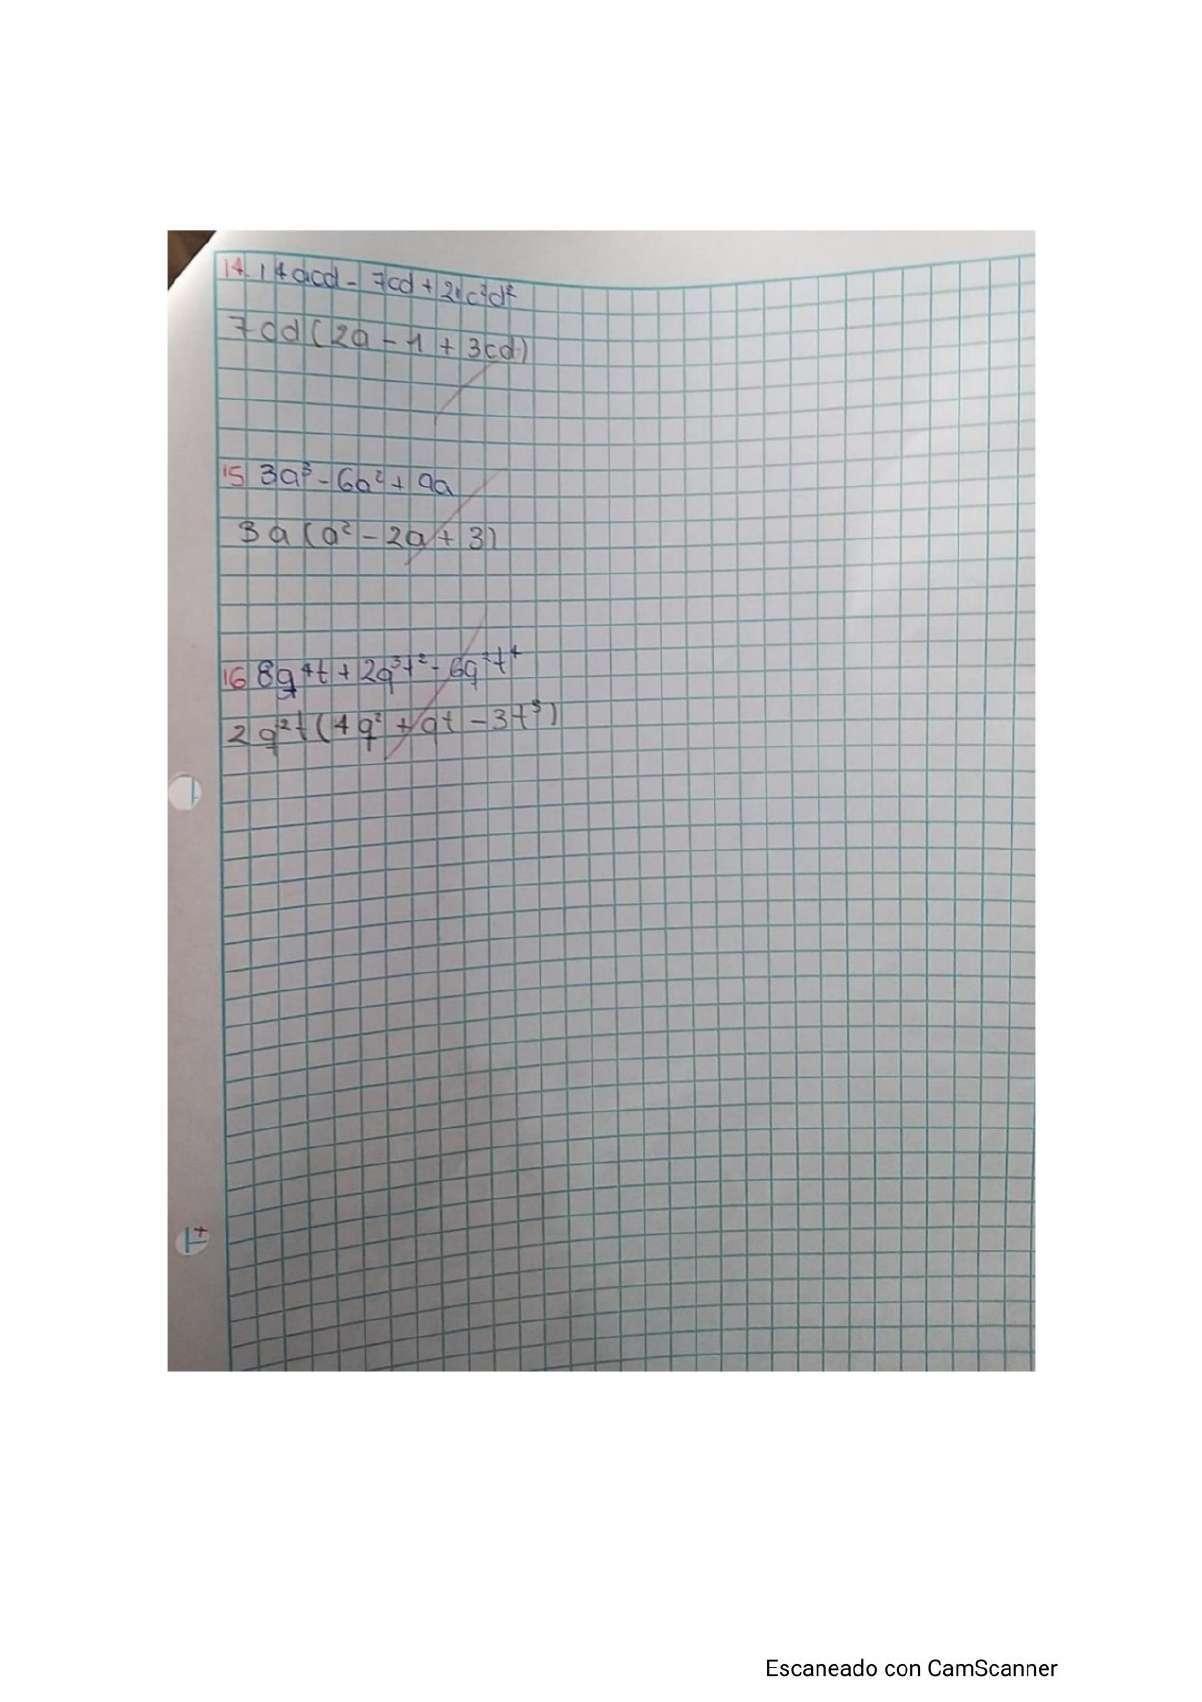 14. 14acd - 7cd + 21c²d²
7cd(2a - 1 + 3cd)
15 3a³ - 6a² + 9a
3a(a² - 2a + 3)
16 8q⁴t + 2q³t² - 6q²t⁴
2q²t(4q² + qt - 3t³)
Escaneado con CamScanner